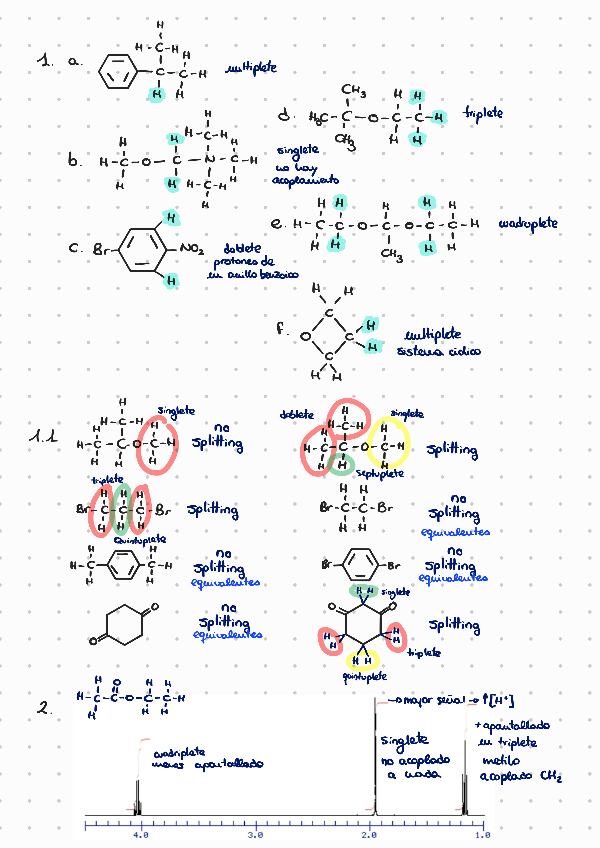 1. a.
multiplete
b.
singlete
no hay
acoplamiento
c.
Br
NO2
doblete
protones de
un anillo benzoico
d.
CH3
H3C-C-O-C-C-H
CH3
triplete
e.
H-C-C-O-C-O-C-C-H
CH3
cuadruplete
f.
multiplete
sistema cíclico
1.1
singlete
no
splitting
doblete
singlete
septuplete
splitting
triplete
Br-C-C-C-Br
quintuplete
splitting
Br-C-C-Br
no
splitting
equivalentes
no
splitting
equivalentes
Br
Br
no
splitting
equivalentes
O
O
no
splitting
equivalentes
H H
singlete
O
O
H
H
H
H
H H
triplete
quintuplete
splitting
2.
H-C-C-O-C-C-H
cuadriplete
menos apantallado
→ mayor señal → ↑[H+]
singlete
no acoplado
a nada
+ apantallado
un triplete
metilo
acoplado CH2
4.0 3.0 2.0 1.0